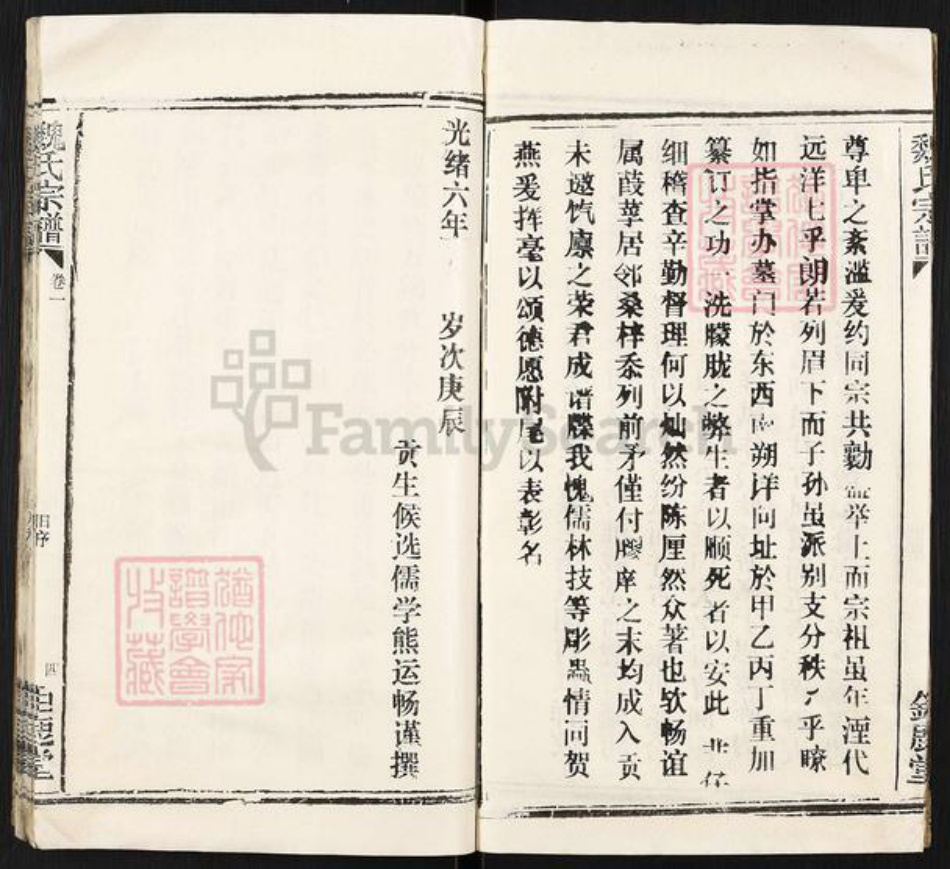 魏氏宗譜
尊卑之紊滥爰约同宗共勷 举上而宗祖虽年湮代
远洋七乎朗若列眉下而子孙虽派别支分秩々乎瞭
如指掌办墓门於东西南朔详向址於甲乙丙丁重加
纂订之功一洗朦胧之弊生者以顺死者以安此 非仔
细稽查辛勤督理何以灿然纷陈厘然众著也欤畅谊
属葭莩居邻桑梓忝列前矛僅付胶庠之末均成入贡
未邀饩廪之荣君成谱牒我愧儒林技等彫蟲情同贺
燕爰挥毫以颂德愿附尾以表彰名
光绪六年 岁次庚辰
贡生候选儒学熊运畅谨撰
魏氏宗譜
卷一
旧序
四
FamilySearch
猶他家
譜學會
收藏
猶他家
譜學會
收藏